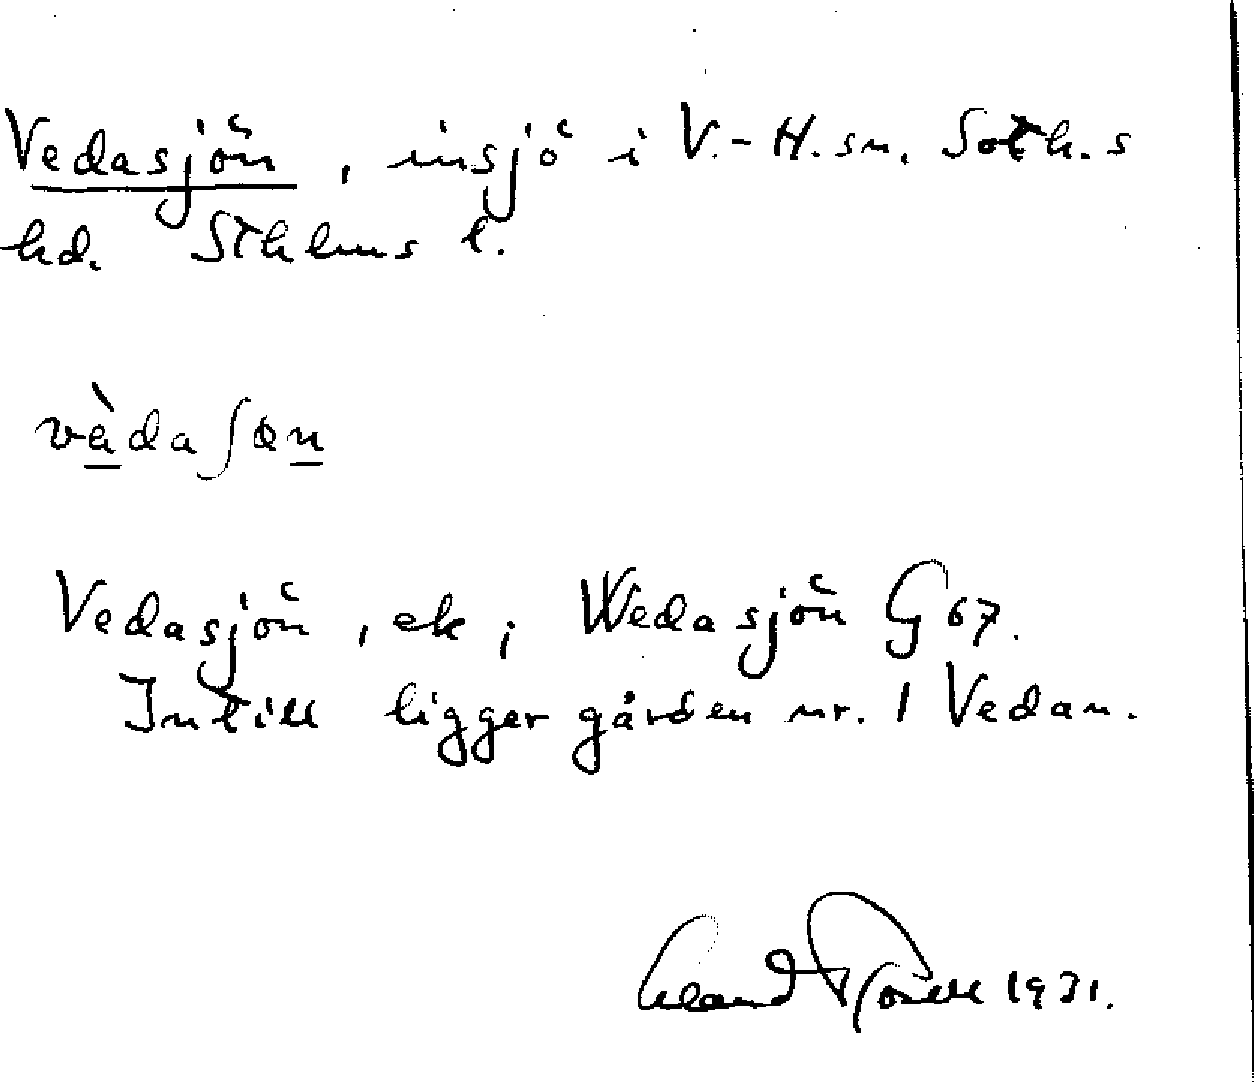 Vedasjön, insjö i V.-H. sn. Soth.s
hd. Sthlms l.
vàdaʃøn
Vedasjön, ek; Wedasjön G 67.
Intill ligger gården nr. 1 Vedan.
1931.